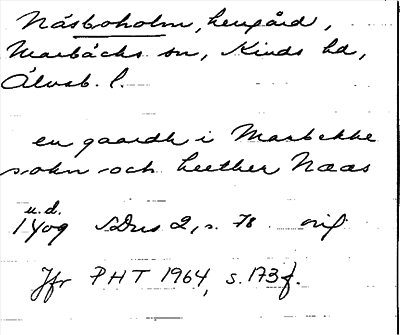 Näsboholm, herrgård,
Marbäcks sn, Kinds hd,
Älvsb. l.
en gaardh i Marbekke
sokn och heether Naas
u.d.
1409 SDns 2, s. 78 orig
Jfr PHT 1964, s. 173 f.